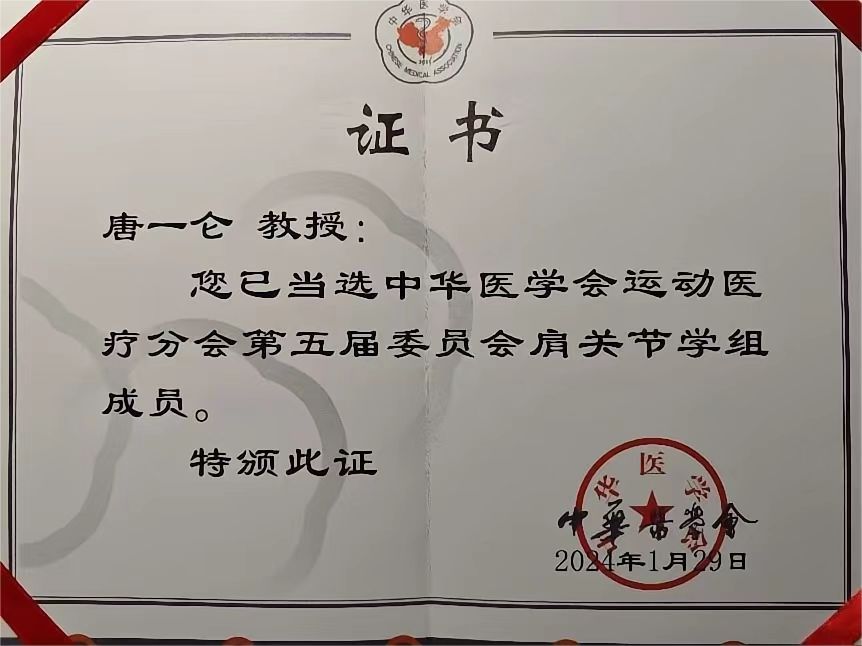 中华医学会
CHINESE MEDICAL ASSOCIATION
1915
证书
唐一仑 教授：
您已当选中华医学会运动医
疗分会第五届委员会肩关节学组
成员。
特颁此证
中華醫學會
2024年1月29日